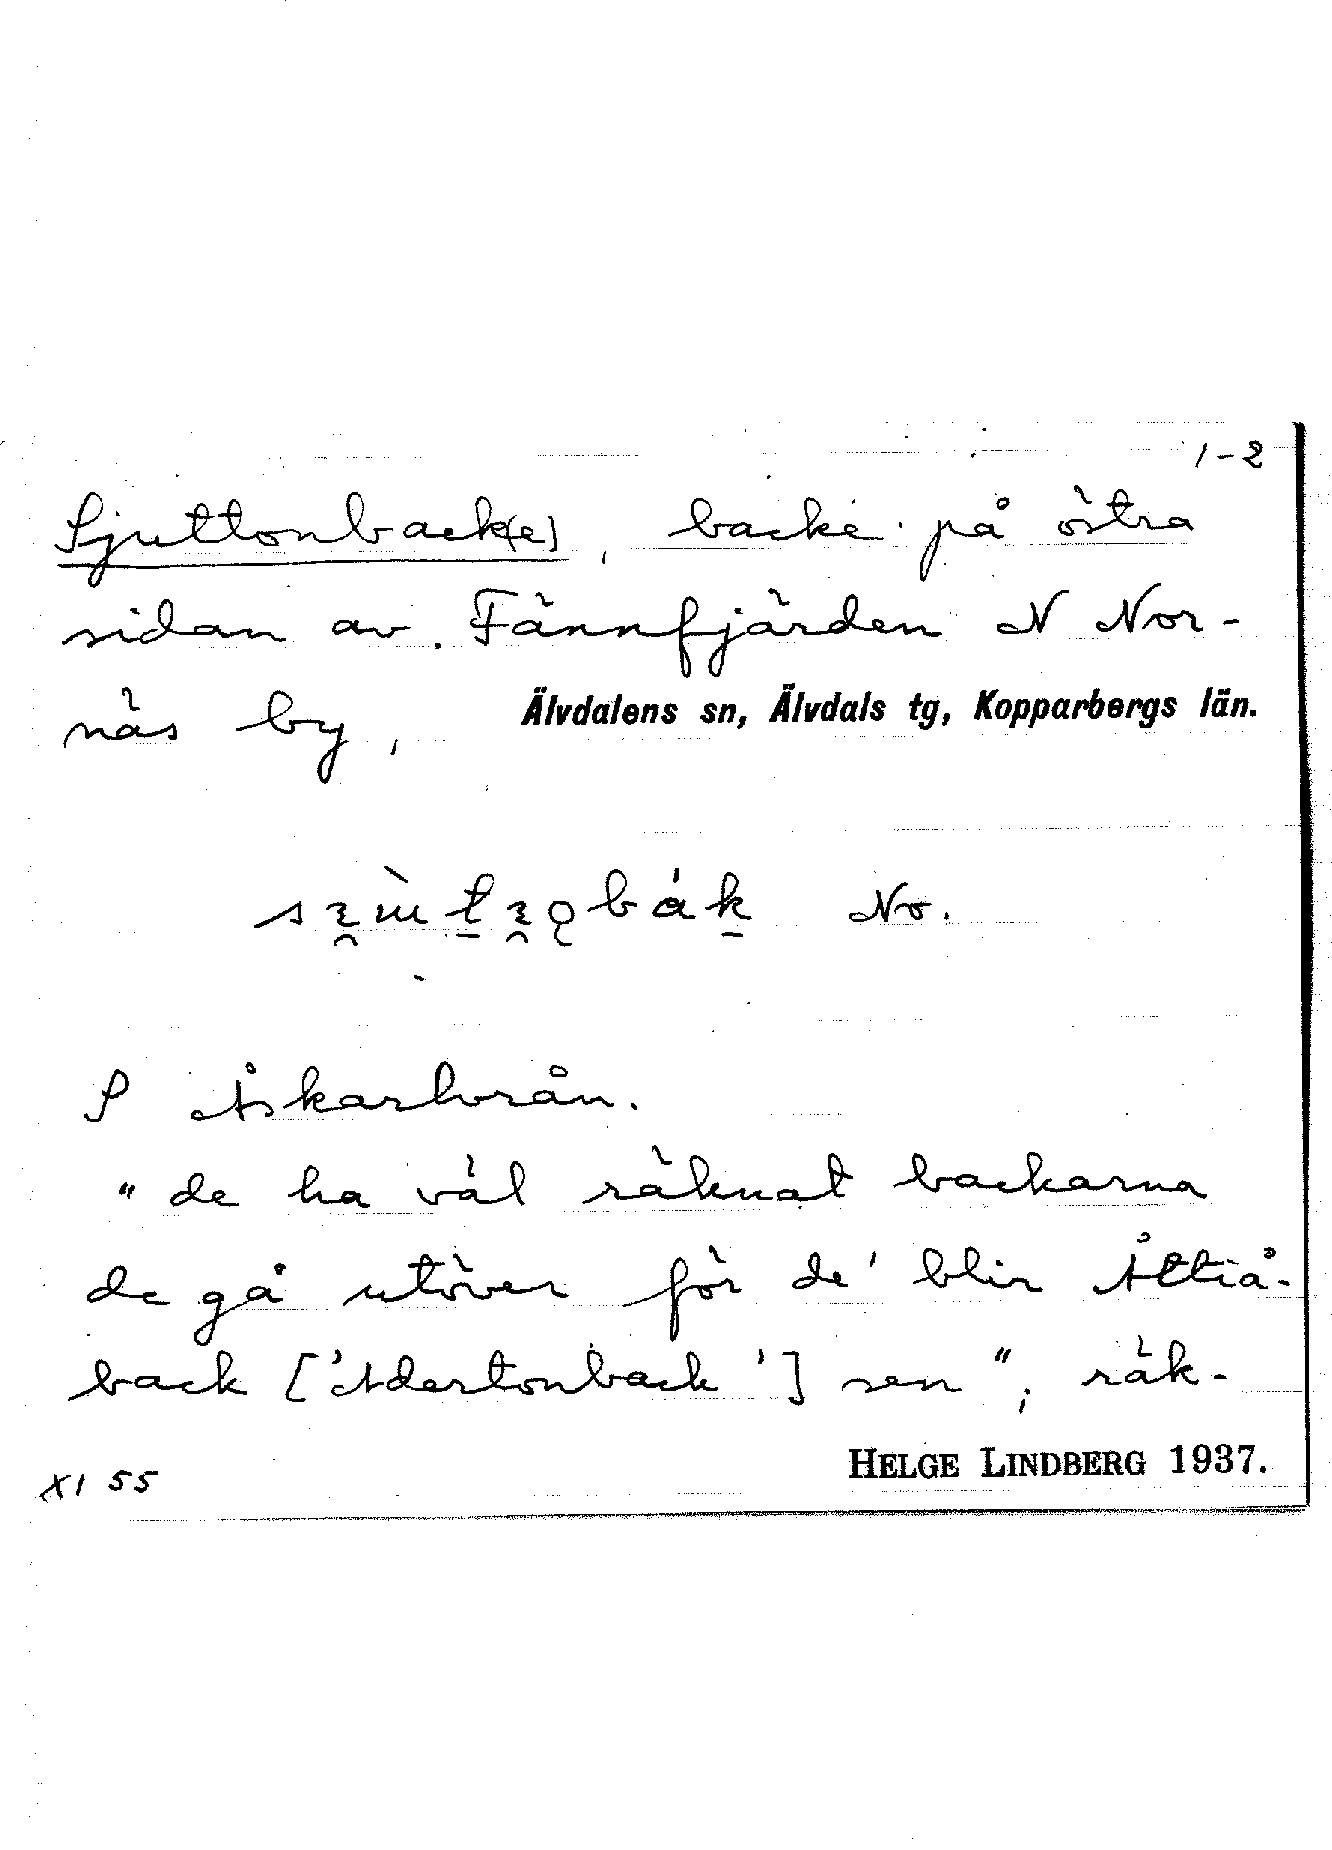 1-2
Sjuttonback(e), backe på östra
sidan av Fännfjärden N Nor-
näs by, Älvdalens sn, Älvdals tg, Kopparbergs län.
No.
S Åskarlvrån.
"de ha väl räknat backarna
de gå utöver för de' blir Åttiå-
back ['Adertonback'] sen"; räk-
HELGE LINDBERG 1937.
XI 55